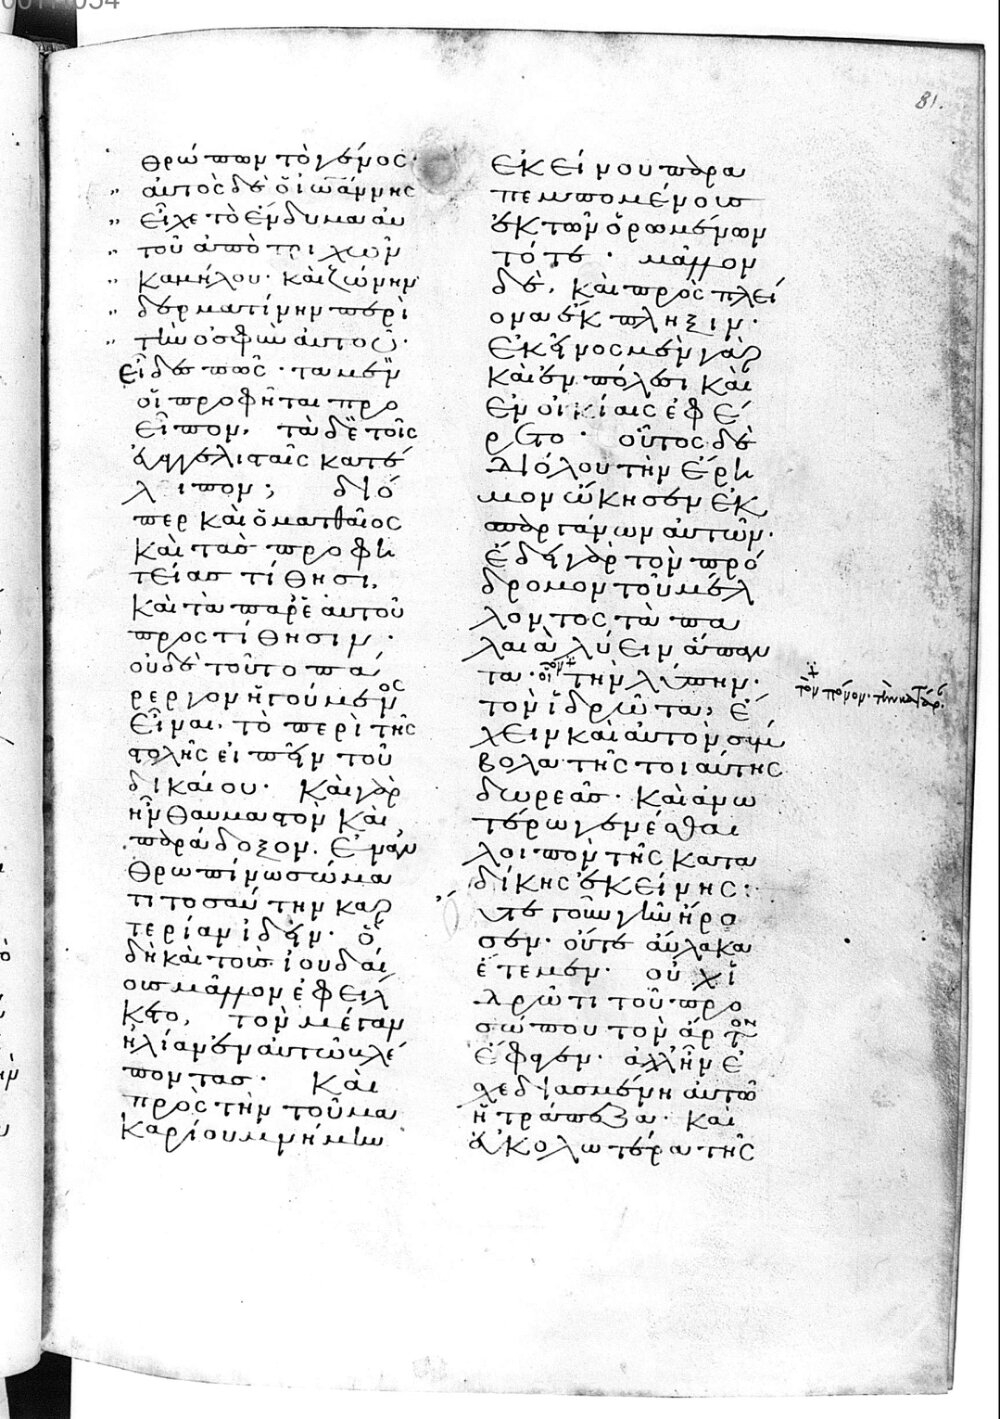 81.
θρώπων τὸ γένος·
αὐτὸς δὲ ὁ ἰωάννης
εἶχε τὸ ἔνδυμα αὐ
τοῦ ἀπὸ τριχῶν
καμήλου· καὶ ζώνην
δερματίνην περὶ
τὴν ὀσφὺν αὐτοῦ·
εἶδες πῶς· τὰ μὲν
οἱ προφῆται προ
εῖπον, τὰ δὲ τοῖς
εὐαγγελισταῖς κατέ
λιπον; διό
περ καὶ ὁ ματθαῖος
καὶ τὰς προφη
τείας τίθησι,
καὶ τὰ παρ' ἑαυτοῦ
προστίθησιν·
οὐδὲ τοῦτο πά
ρεργον ἡγούμενος
εἶναι· τὸ περὶ τῆς
στολῆς εἰπεῖν τοῦ
δικαίου· καὶ γὰρ
ἦν θαυμαστὸν καὶ
παράδοξον. ἐν ἀν
θρωπίνω σώμα
τι τοσαύτην καρ
τερίαν ἰδεῖν· ὃ
δὴ καὶ τοὺς ἰουδαί
ους μᾶλλον ἐφεῖλ
κετο, τὸν μέγαν
ἠλίαν ἐν αὐτῶ βλέ
ποντας· καὶ
πρὸς τὴν τοῦ μα
καρίου μνήμην
ἐκείνου παρα
πεμπομένους
ἐκ τῶν ὁρωμένων
τότε· μᾶλλον
δὲ, καὶ πρὸς πλεί
ονα ἔκπληξιν·
ἐκεῖνος μὲν γὰρ
καὶ ἐν πόλεσι καὶ
ἐν οἰκίαις ἐφέ
ρετο· οὗτος δὲ
διόλου τὴν ἔρη
μον ὤκησεν ἐκ
σπαργάνων αὐτῶν·
ἔδει γὰρ τὸν πρό
δρομον τοῦ μέλ
λοντος τὰ πα
λαιὰ λύειν ἅπαν
τα· οἷον τὴν λύπην·
τὸν πόνον· τὴν κατάρ.
τὸν ἱδρῶτα, ἔ
χειν καὶ αὐτὸν σύμ
βολα τῆς τοιαύτης
δωρεᾶς· καὶ ἀνω
τέρω γενέσθαι
λοιπὸν τῆς κατα
δίκης ἐκείνης:
οὔτε γοῦν γῆν ἤρο
σεν· οὔτε αὔλακα
ἔτεμεν· οὐχ ἱ
δρῶτι τοῦ προ
σώπου τὸν ἄρτον
ἔφαγεν· ἀλλ' ἦν ἐ
σχεδιασμένη αὐτῶ
ἡ τράπεζα· καὶ
εὐκολωτέρα τῆς